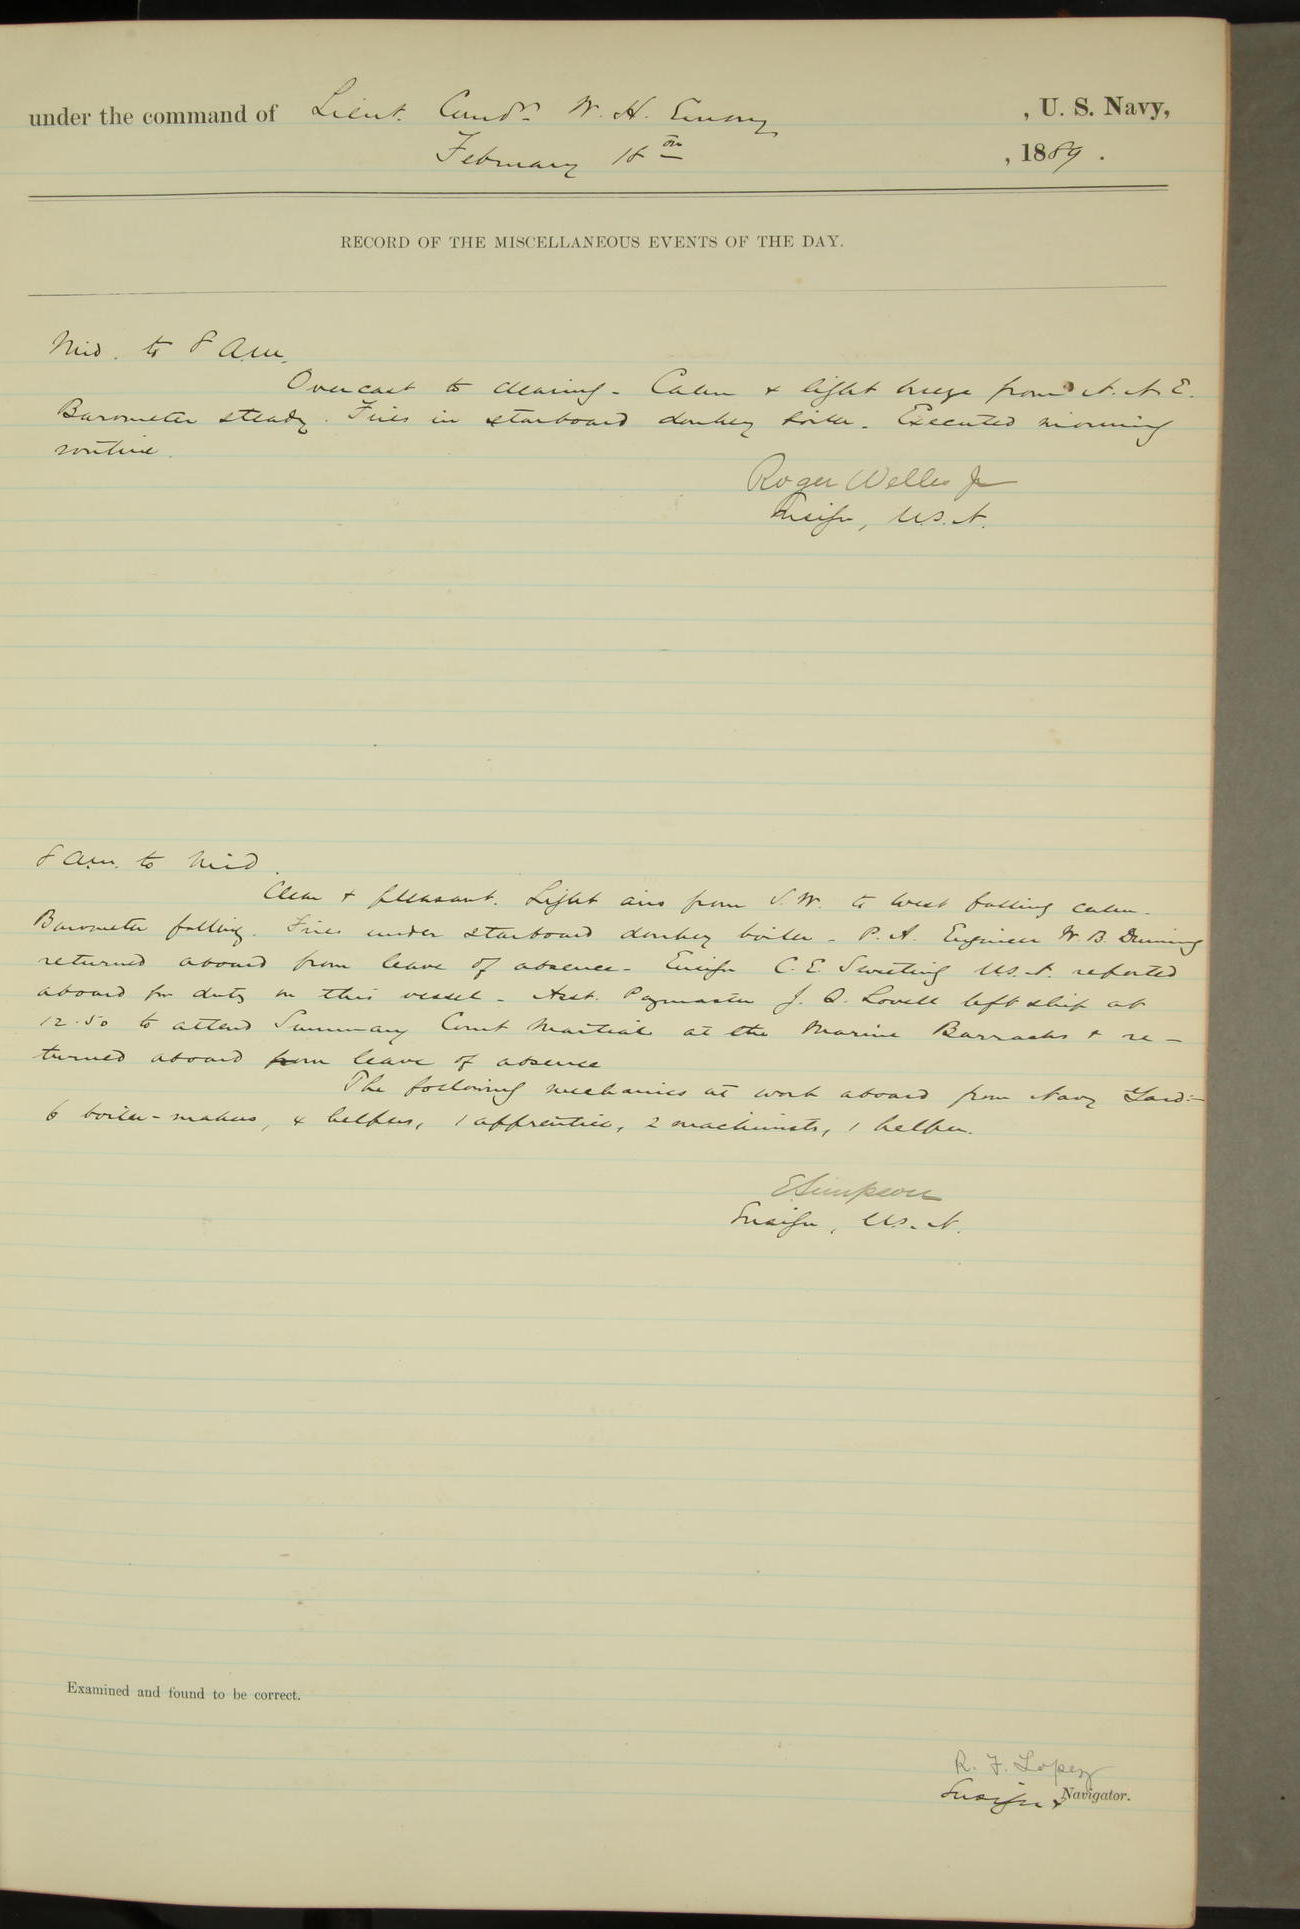 under the command of Lieut. Comdr. W. H. Emory, U. S. Navy,
February 18th, 1889.
RECORD OF THE MISCELLANEOUS EVENTS OF THE DAY.
Mid. to 8 A.M.
Overcast to clearing - Calm & light breeze from N. N. E.
Barometer steady. Fires in starboard donkey boiler. Executed morning
routine.
Roger Welles Jr
Ensign, U.S.N.
8 A.M. to Mid.
Clear & pleasant. Light airs from S. W. to West falling calm.
Barometer falling. Fires under starboard donkey boiler - P. A. Engineer W. B. Dunning
returned aboard from leave of absence - Ensign C. E. Sweeting U.S.N. reported
aboard for duty on this vessel - Asst. Paymaster J. Q. Lovell left ship at
12.50 to attend Summary Court Martial at the Marine Barracks & re-
turned aboard from leave of absence
The following mechanics at work aboard from Navy Yard:-
6 boiler-makers, 4 helpers, 1 apprentice, 2 machinists, 1 helper.
E Simpson
Ensign, U.S.N.
Examined and found to be correct.
R. F. Lopez
Ensign & Navigator.